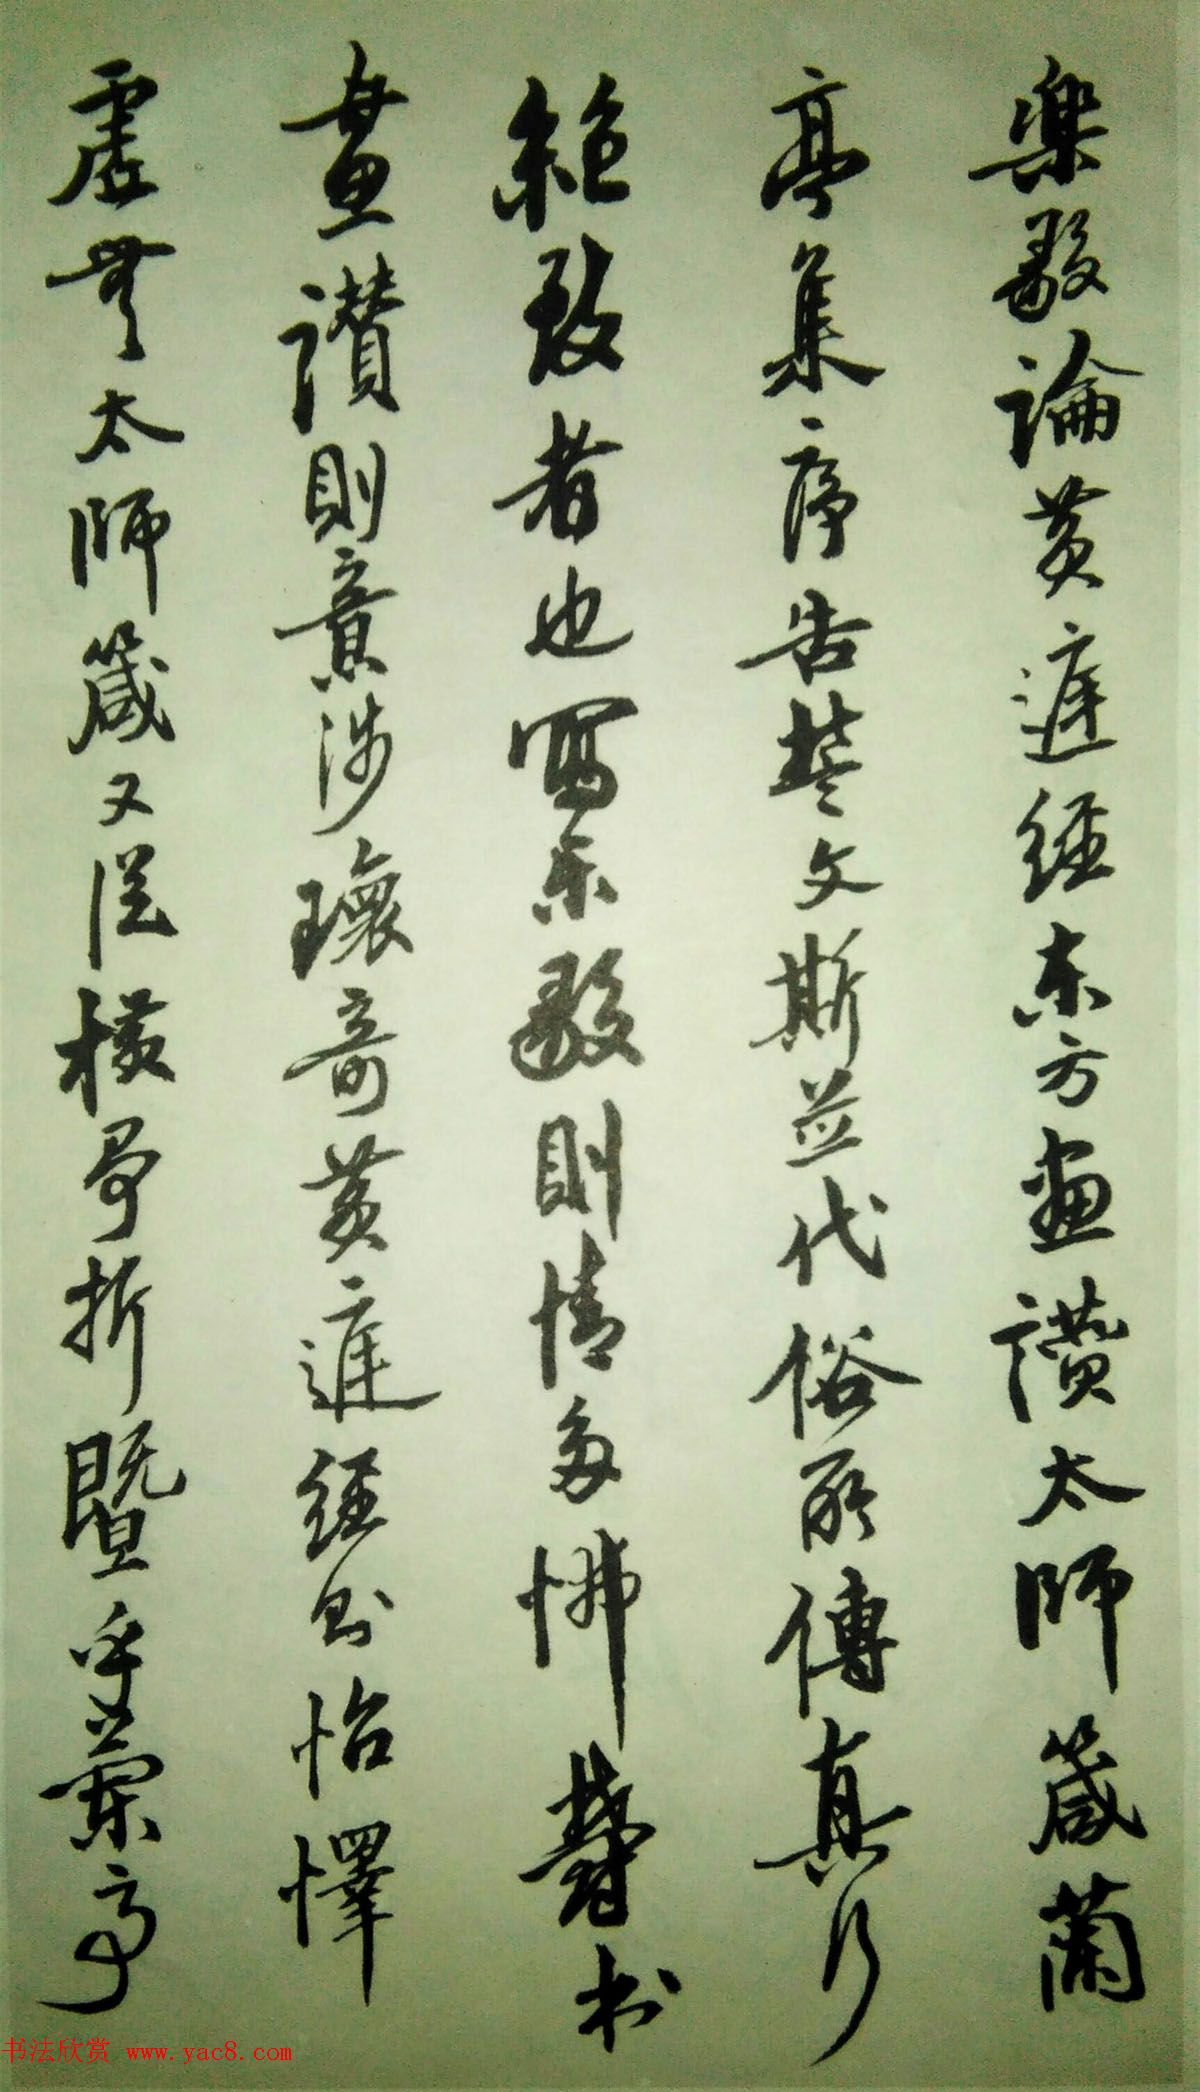 樂毅論黃庭經东方畫讚太师箴蘭
亭集序告誓文斯並代俗所傳真行
絕致者也寫乐毅則情多怫欝书
畫讚則意涉瓌奇黃庭經则怡懌
虛无太师箴又從橫爭折暨乎蘭亭
书法欣赏 www.yac8.com